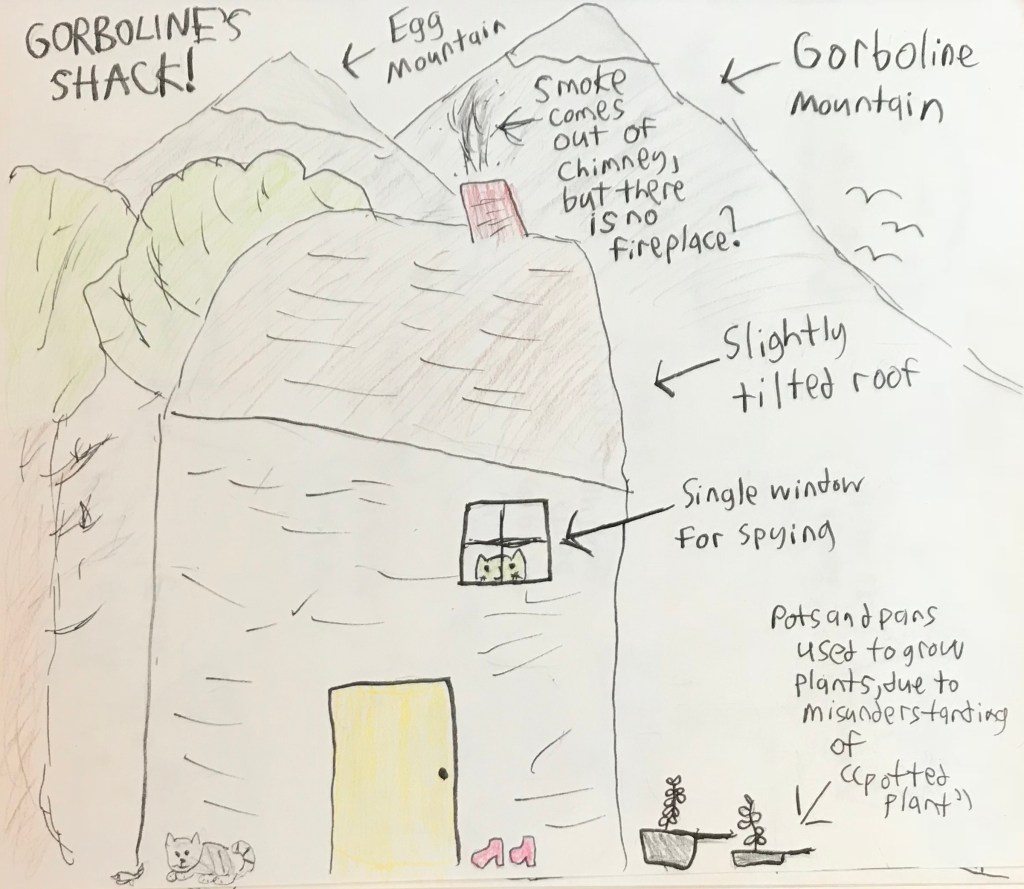 GORBOLINE'S
SHACK!
Egg
Mountain
Gorboline
Mountain
Smoke
comes
out of
chimney,
but there
is no
fireplace?
Slightly
tilted roof
Single window
for spying
Pots and pans
used to grow
plants, due to
misunderstanding
of
"potted
plant"